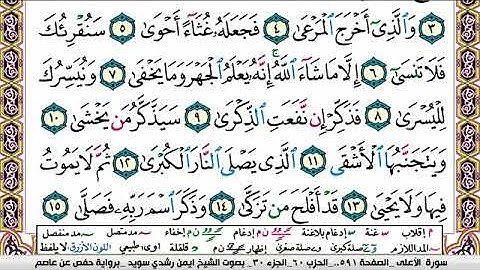 ٣ وَالَّذِىٓ أَخْرَجَ الْمَرْعَىٰ ٤ فَجَعَلَهُۥ غُثَآءً أَحْوَىٰ ٥ سَنُقْرِئُكَ
فَلَا تَنسَىٰٓ ٦ إِلَّا مَا شَآءَ اللَّهُ ۚ إِنَّهُۥ يَعْلَمُ الْجَهْرَ وَمَا يَخْفَىٰ ٧ وَنُيَسِّرُكَ
لِلْيُسْرَىٰ ٨ فَذَكِّرْ إِن نَّفَعَتِ الذِّكْرَىٰ ٩ سَيَذَّكَّرُ مَن يَخْشَىٰ ١٠
وَيَتَجَنَّبُهَا الْأَشْقَى ١١ الَّذِى يَصْلَى النَّارَ الْكُبْرَىٰ ١٢ ثُمَّ لَا يَمُوتُ
فِيهَا وَلَا يَحْيَىٰ ١٣ قَدْ أَفْلَحَ مَن تَزَكَّىٰ ١٤ وَذَكَرَ اسْمَ رَبِّهِۦ فَصَلَّىٰ ١٥
م إقلاب غنة إدغام بلاغنة ن م إدغام ن م إخفاء مد متصل مد منفصل
المد اللازم صلة كبرى صلة صغرى إظهار ن م قلقلة اوى، طبيعي اللون الأزرق لا يلفظ
سورة الأعلى ـ الصفحة ٥٩١ ـ الحزب ٦٠ ـ الجزء ٣٠ ـ بصوت الشيخ ايمن رشدي سويد ـ برواية حفص عن عاصم